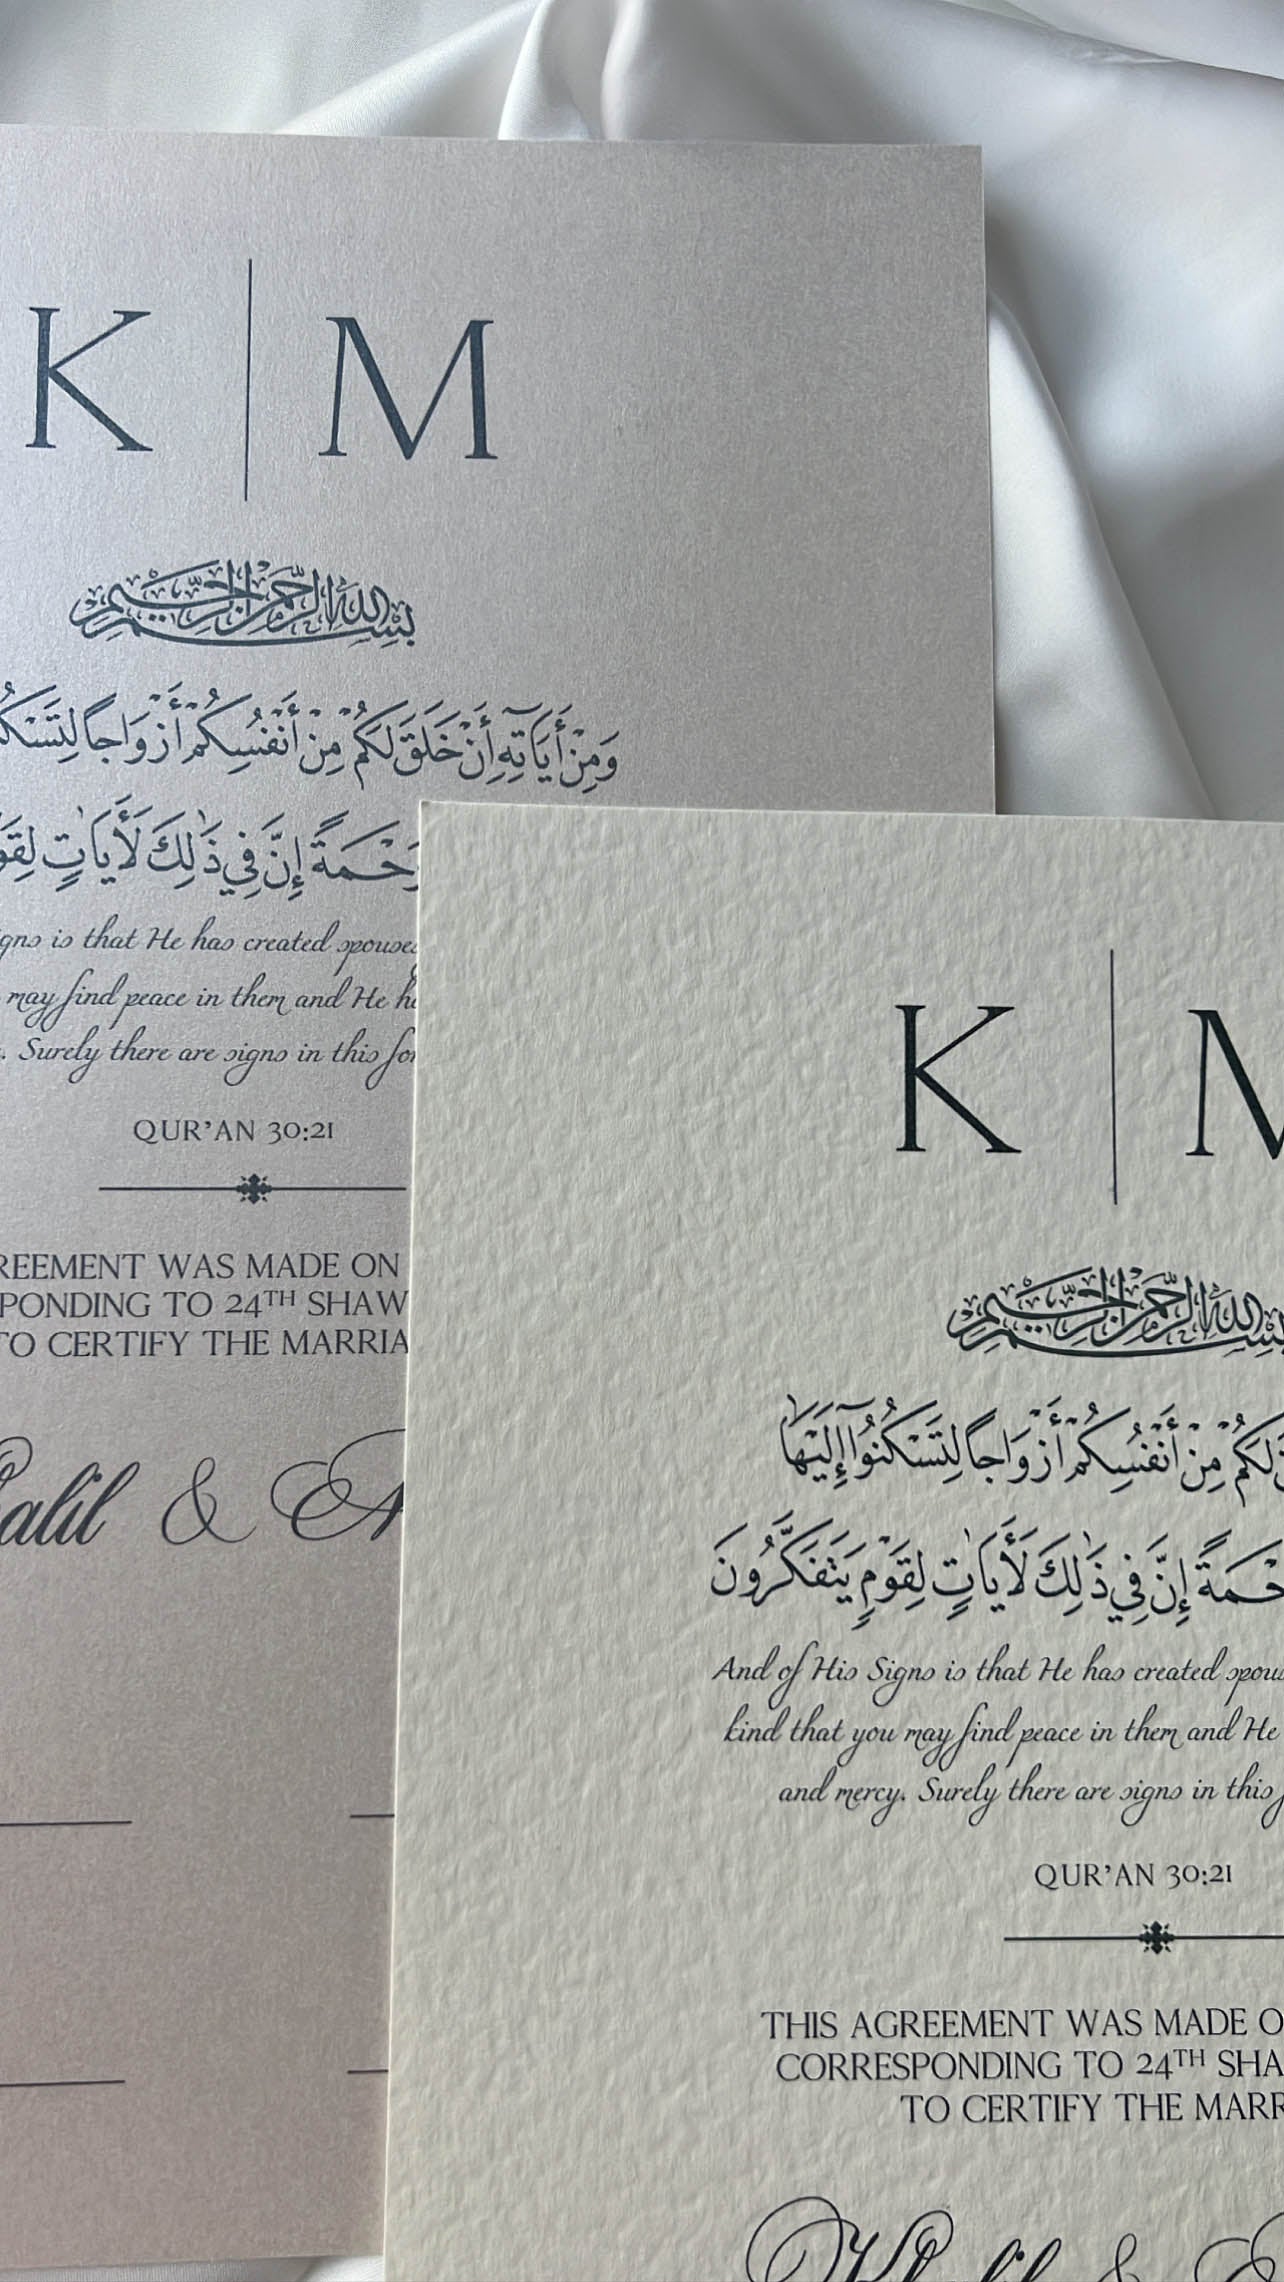 K | M
بِسْمِ اللَّهِ الرَّحْمَٰنِ الرَّحِيمِ
وَمِنْ أَيَاتِهِ أَنْ خَلَقَ لَكُم مِنْ أَنْفُسِكُمْ أَزْوَاجاً
رَحْمَةً إِنَّ فِي ذَٰلِكَ لَأَيَاتٍ
is that He has created
may find peace in them and He
Surely there are signs in this
QUR'AN 30:21
WAS MADE ON
TO 24TH
TO CERTIFY THE
&
K | M
بِسْمِ اللَّهِ الرَّحْمَٰنِ الرَّحِيمِ
لَكُم مِنْ أَنْفُسِكُمْ أَزْوَاجاً لِتَسْكُنُوا إِلَيْهَا
إِنَّ فِي ذَٰلِكَ لَأَيَاتٍ لِقَوْمٍ يَتَفَكَّرُونَ
And of His Signs is that He has created
kind that you may find peace in them and He
and mercy. Surely there are signs in this
QUR'AN 30:21
THIS AGREEMENT WAS MADE
CORRESPONDING TO 24TH
TO CERTIFY THE
Khalil &